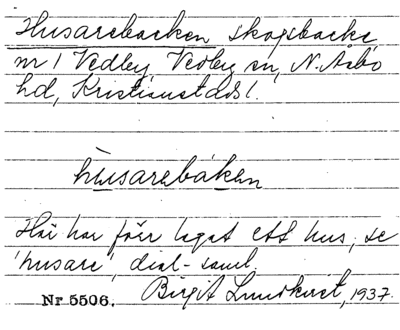 Husarebacken skogsbacke
nr 1 Vedby, Vedby sn, N. Åsbo
hd, Kristianstads l.
husarebáken
Här har förr legat ett hus, se
'husare', dial-saml.
Nr 5506. Birgit Lundkvist, 1937.